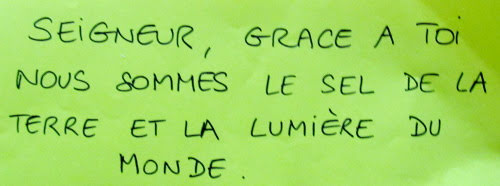 SEIGNEUR, GRACE A TOI
NOUS SOMMES LE SEL DE LA
TERRE ET LA LUMIÈRE DU
MONDE.